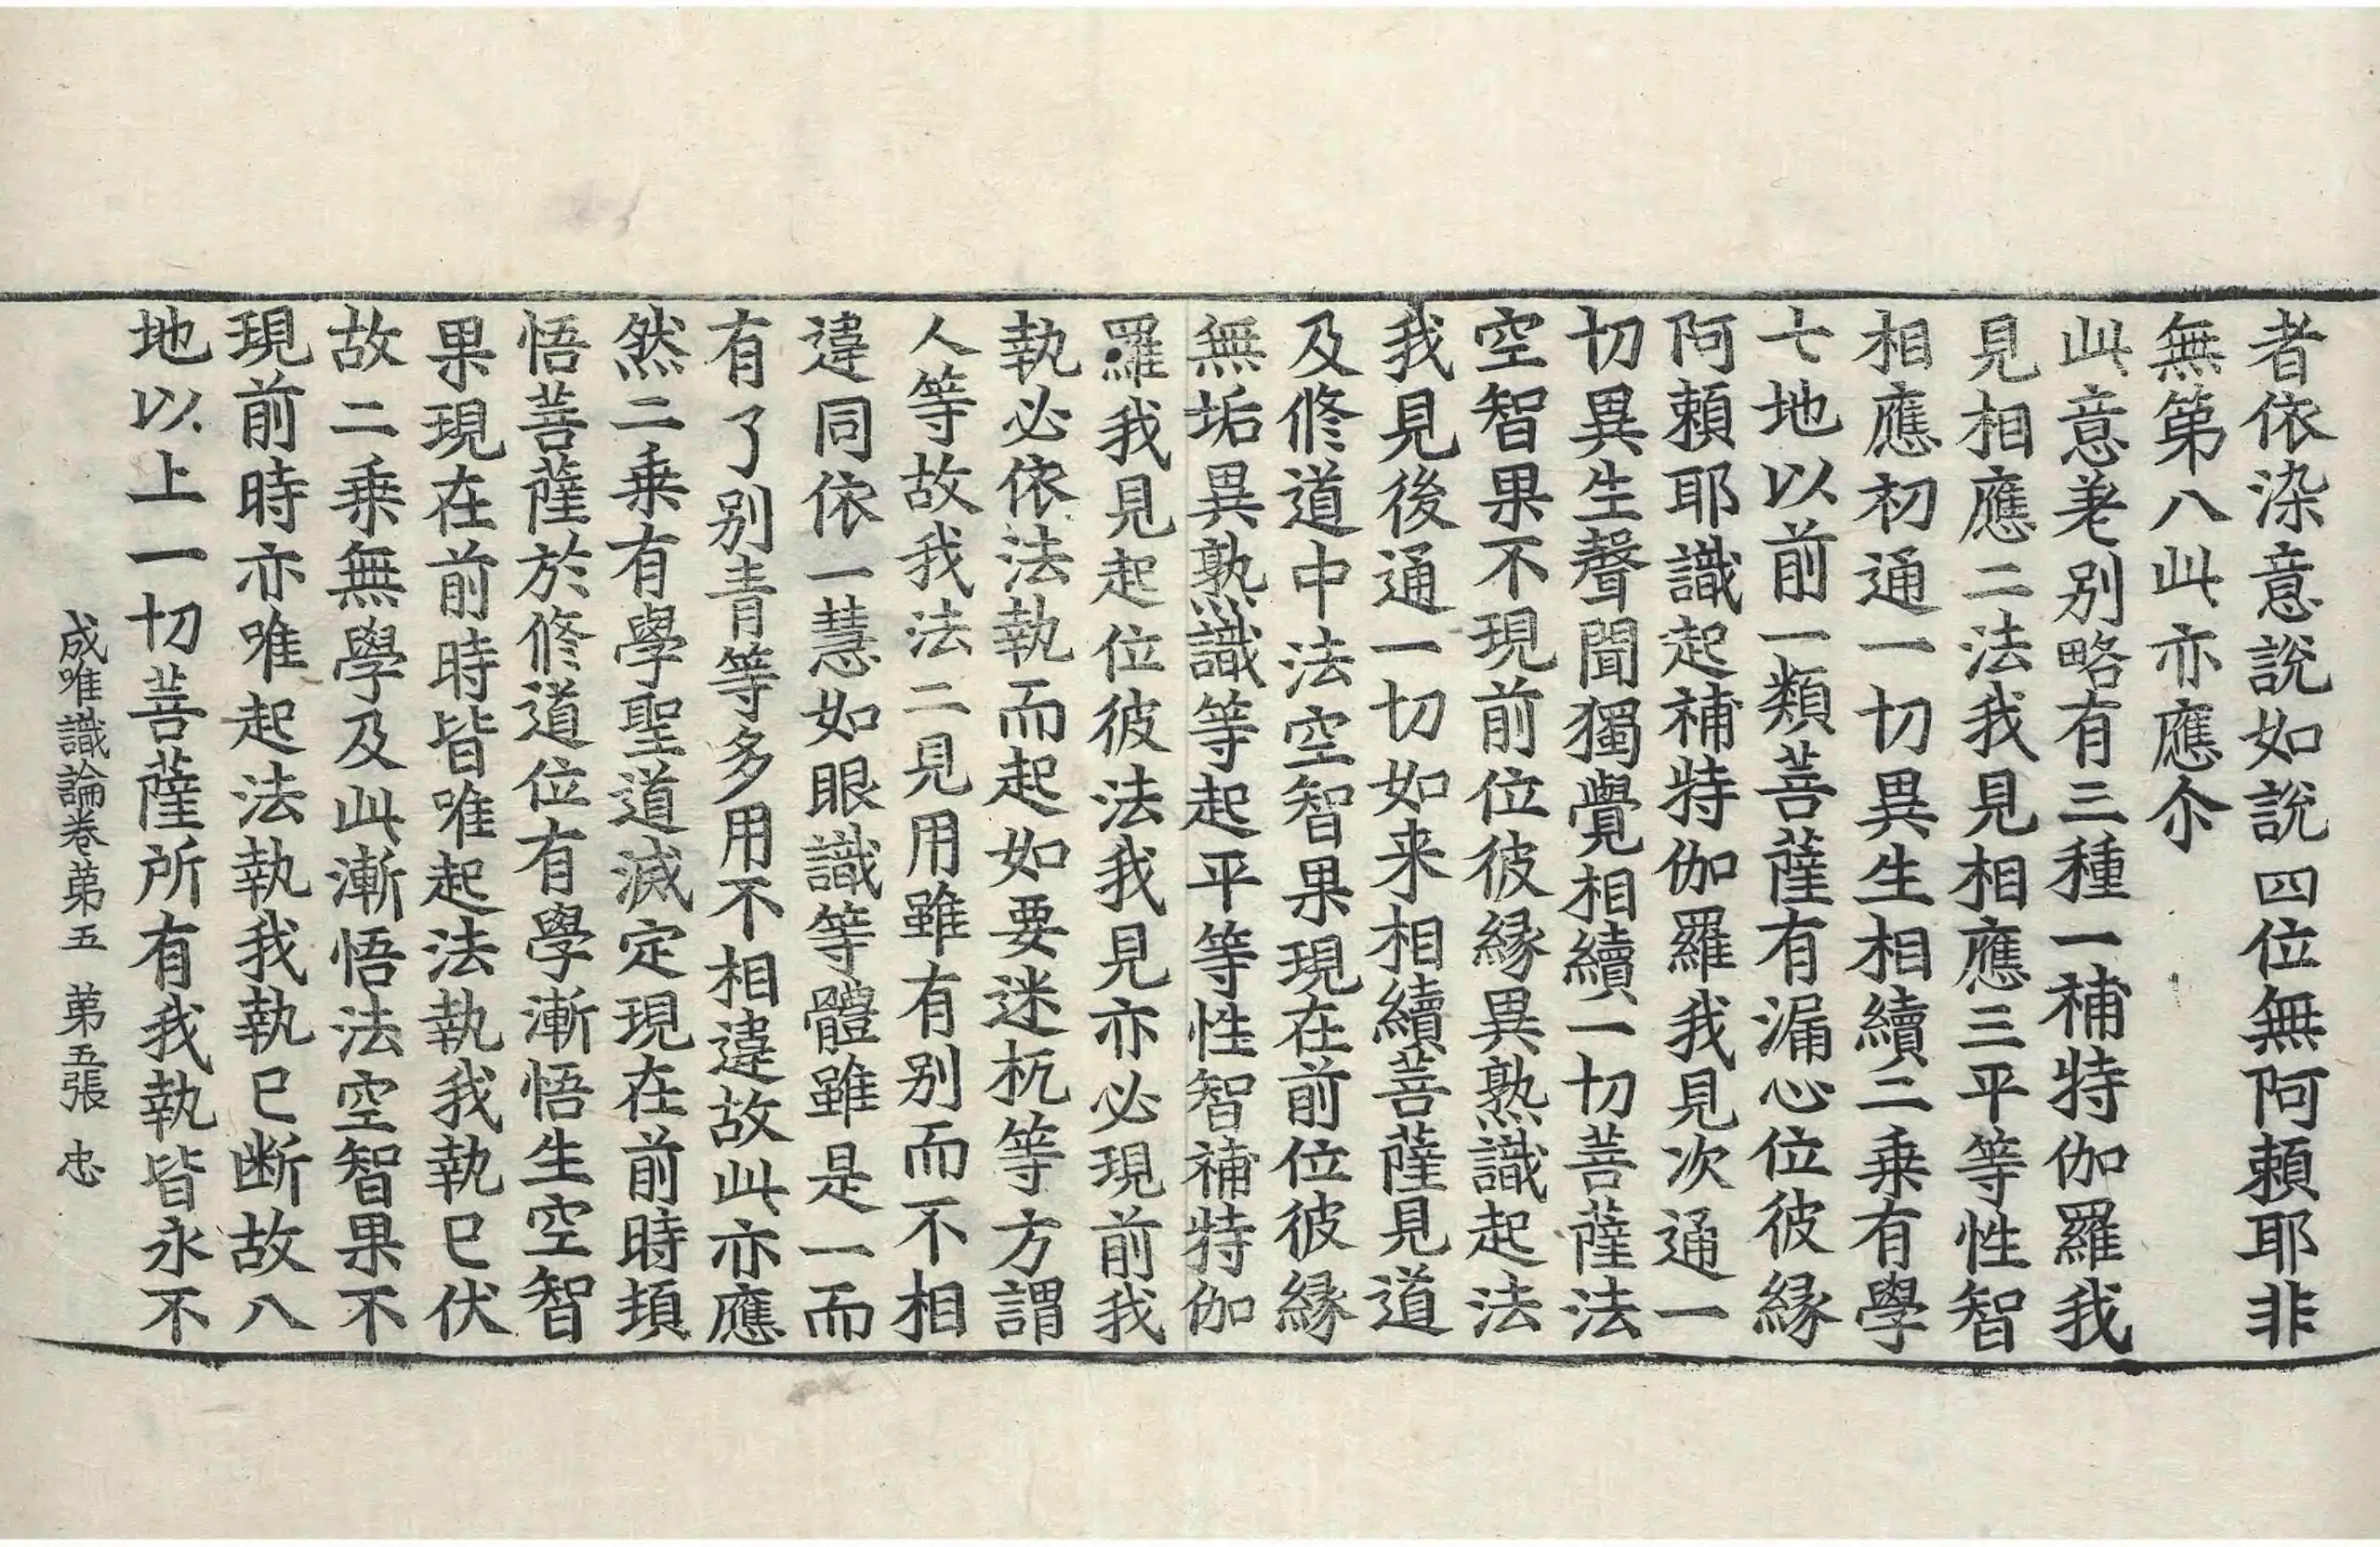 者依染意說如說四位無阿頼耶非
無第八此亦應尒
此意差別略有三種一補特伽羅我
見相應二法我見相應三平等性智
相應初通一切異生相續二乗有學
七地以前一類菩薩有漏心位彼縁
阿頼耶識起補特伽羅我見次通一
切異生聲聞獨覺相續一切菩薩法
空智果不現前位彼縁異熟識起法
我見後通一切如来相續菩薩見道
及修道中法空智果現在前位彼縁
無垢異熟識等起平等性智補特伽
羅我見起位彼法我見亦必現前我
執必依法執而起如要迷杌等方謂
人等故我法二見用雖有別而不相
違同依一慧如眼識等體雖是一而
有了別青等多用不相違故此亦應
然二乗有學聖道滅定現在前時頓
悟菩薩於修道位有學漸悟生空智
果現在前時皆唯起法執我執已伏
故二乗無學及此漸悟法空智果不
現前時亦唯起法執我執已断故八
地以上一切菩薩所有我執皆永不
成唯識論卷第五 第五張 忠